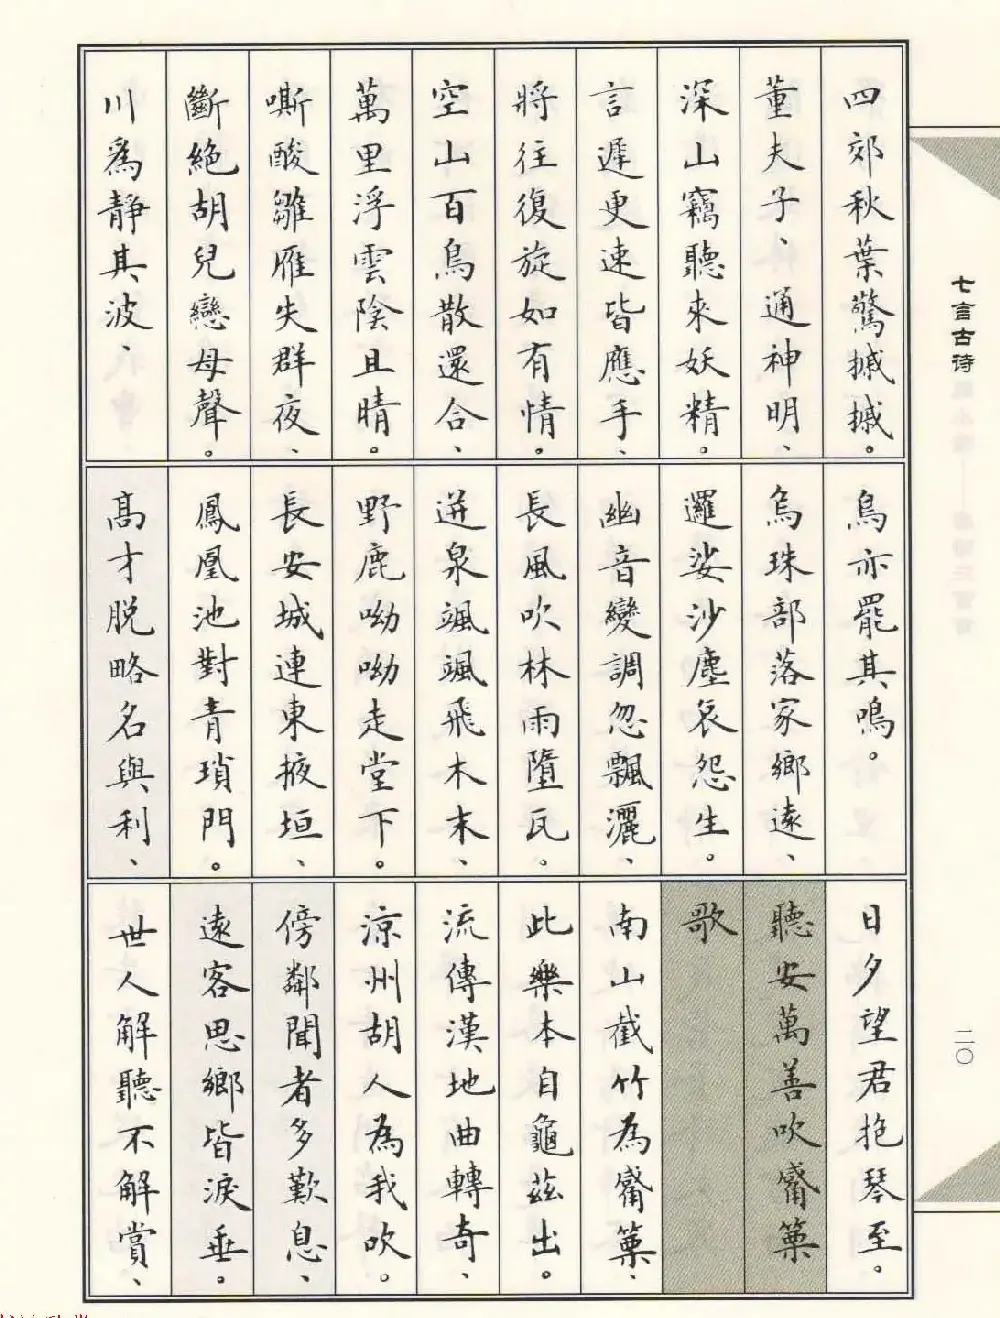 四郊秋葉驚摵摵。
董夫子、通神明、
深山竊聽來妖精。
言遲更速皆應手、
將往復旋如有情。
空山百鳥散還合、
萬里浮雲陰且晴。
嘶酸雛雁失群夜、
斷絕胡兒戀母聲。
川爲靜其波、
鳥亦罷其鳴。
烏珠部落家鄉遠、
邏娑沙塵哀怨生。
幽音變調忽飄灑、
長風吹林雨墮瓦。
迸泉颯颯飛木末、
野鹿呦呦走堂下。
長安城連東掖垣、
鳳凰池對青瑣門。
高才脱略名與利、
日夕望君抱琴至。
聽安萬善吹觱篥
歌
南山截竹為觱篥、
此樂本自龜茲出。
流傳漢地曲轉奇、
涼州胡人為我吹。
傍鄰聞者多歎息、
遠客思鄉皆淚垂。
世人解聽不解賞、
七言古诗
二〇